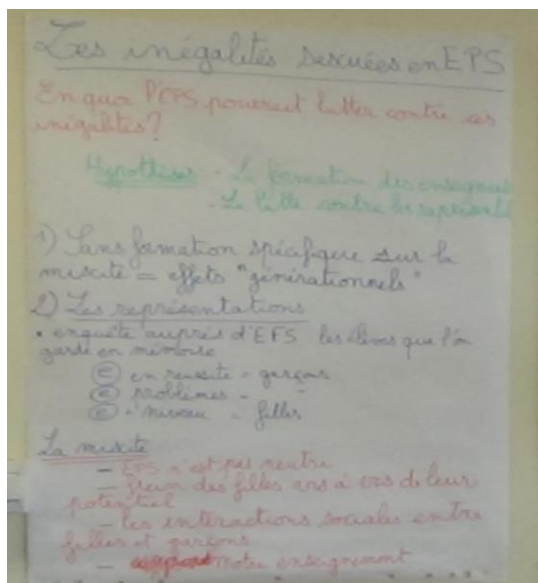 Les inégalités sexuées en EPS
En quoi l'EPS pourrait lutter contre ces
inégalités?
Hypothèses - La formation des enseignants
- La lutte contre les représent
1) Sans formation spécifique sur la
mixité = effets "générationnels"
2) Les représentations
• enquête auprès d'EPS les élèves que l'on
garde en mémoire
en réussite = garçons
problèmes -
niveau = filles
La mixité
- EPS n'est pas neutre
- frein des filles vis à vis de leur
potentiel
- les interactions sociales entre
filles et garçons
- notre enseignement